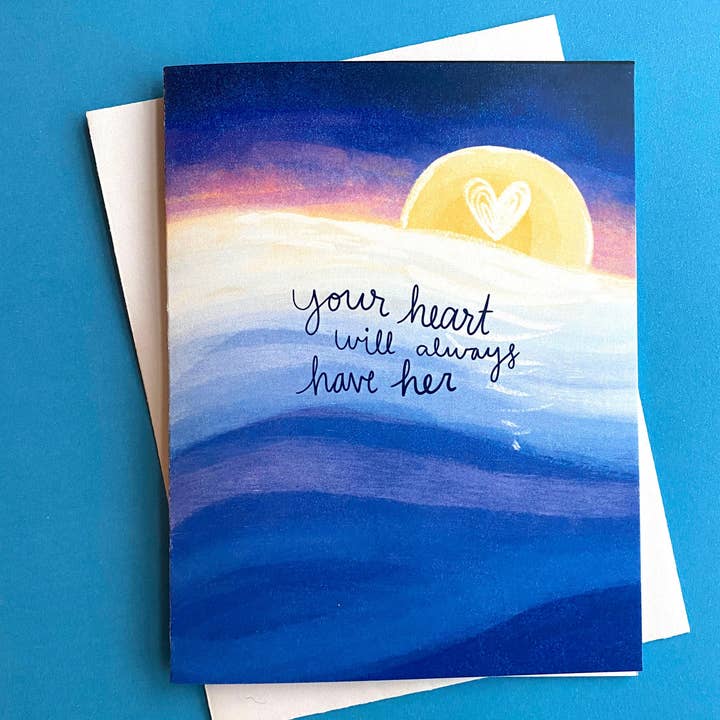 your heart
will always
have her